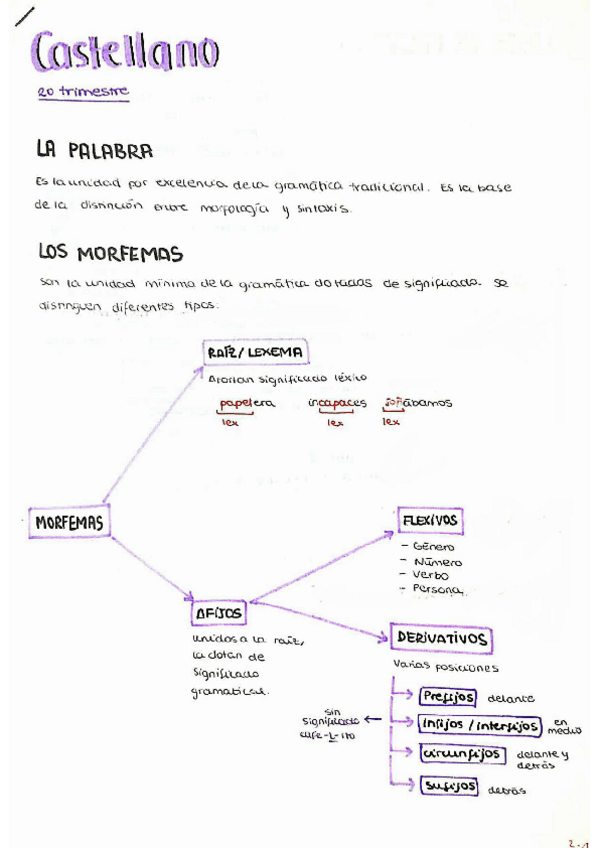 Castellano
2o trimestre
LA PALABRA
Es la unidad por excelencia de la gramática tradicional. Es la base
de la distinción entre morfología y sintaxis.
LOS MORFEMAS
Son la unidad mínima de la gramática dotadas de significado. Se
distinguen diferentes tipos:
RAÍZ/ LEXEMA
Aportan significado léxico
papelera incapaces soñábamos
lex lex lex
MORFEMAS
FLEXIVOS
- Género
- Número
- Verbo
- Persona
AFIJOS
unidos a la raíz,
la dotan de
significado
gramatical.
DERIVATIVOS
Varias posiciones
Prefijos delante
sin
significado
cafe-L-ito
Infijos / interfijos en
medio
circunfijos delante y
detrás
Sufijos detrás
2-1